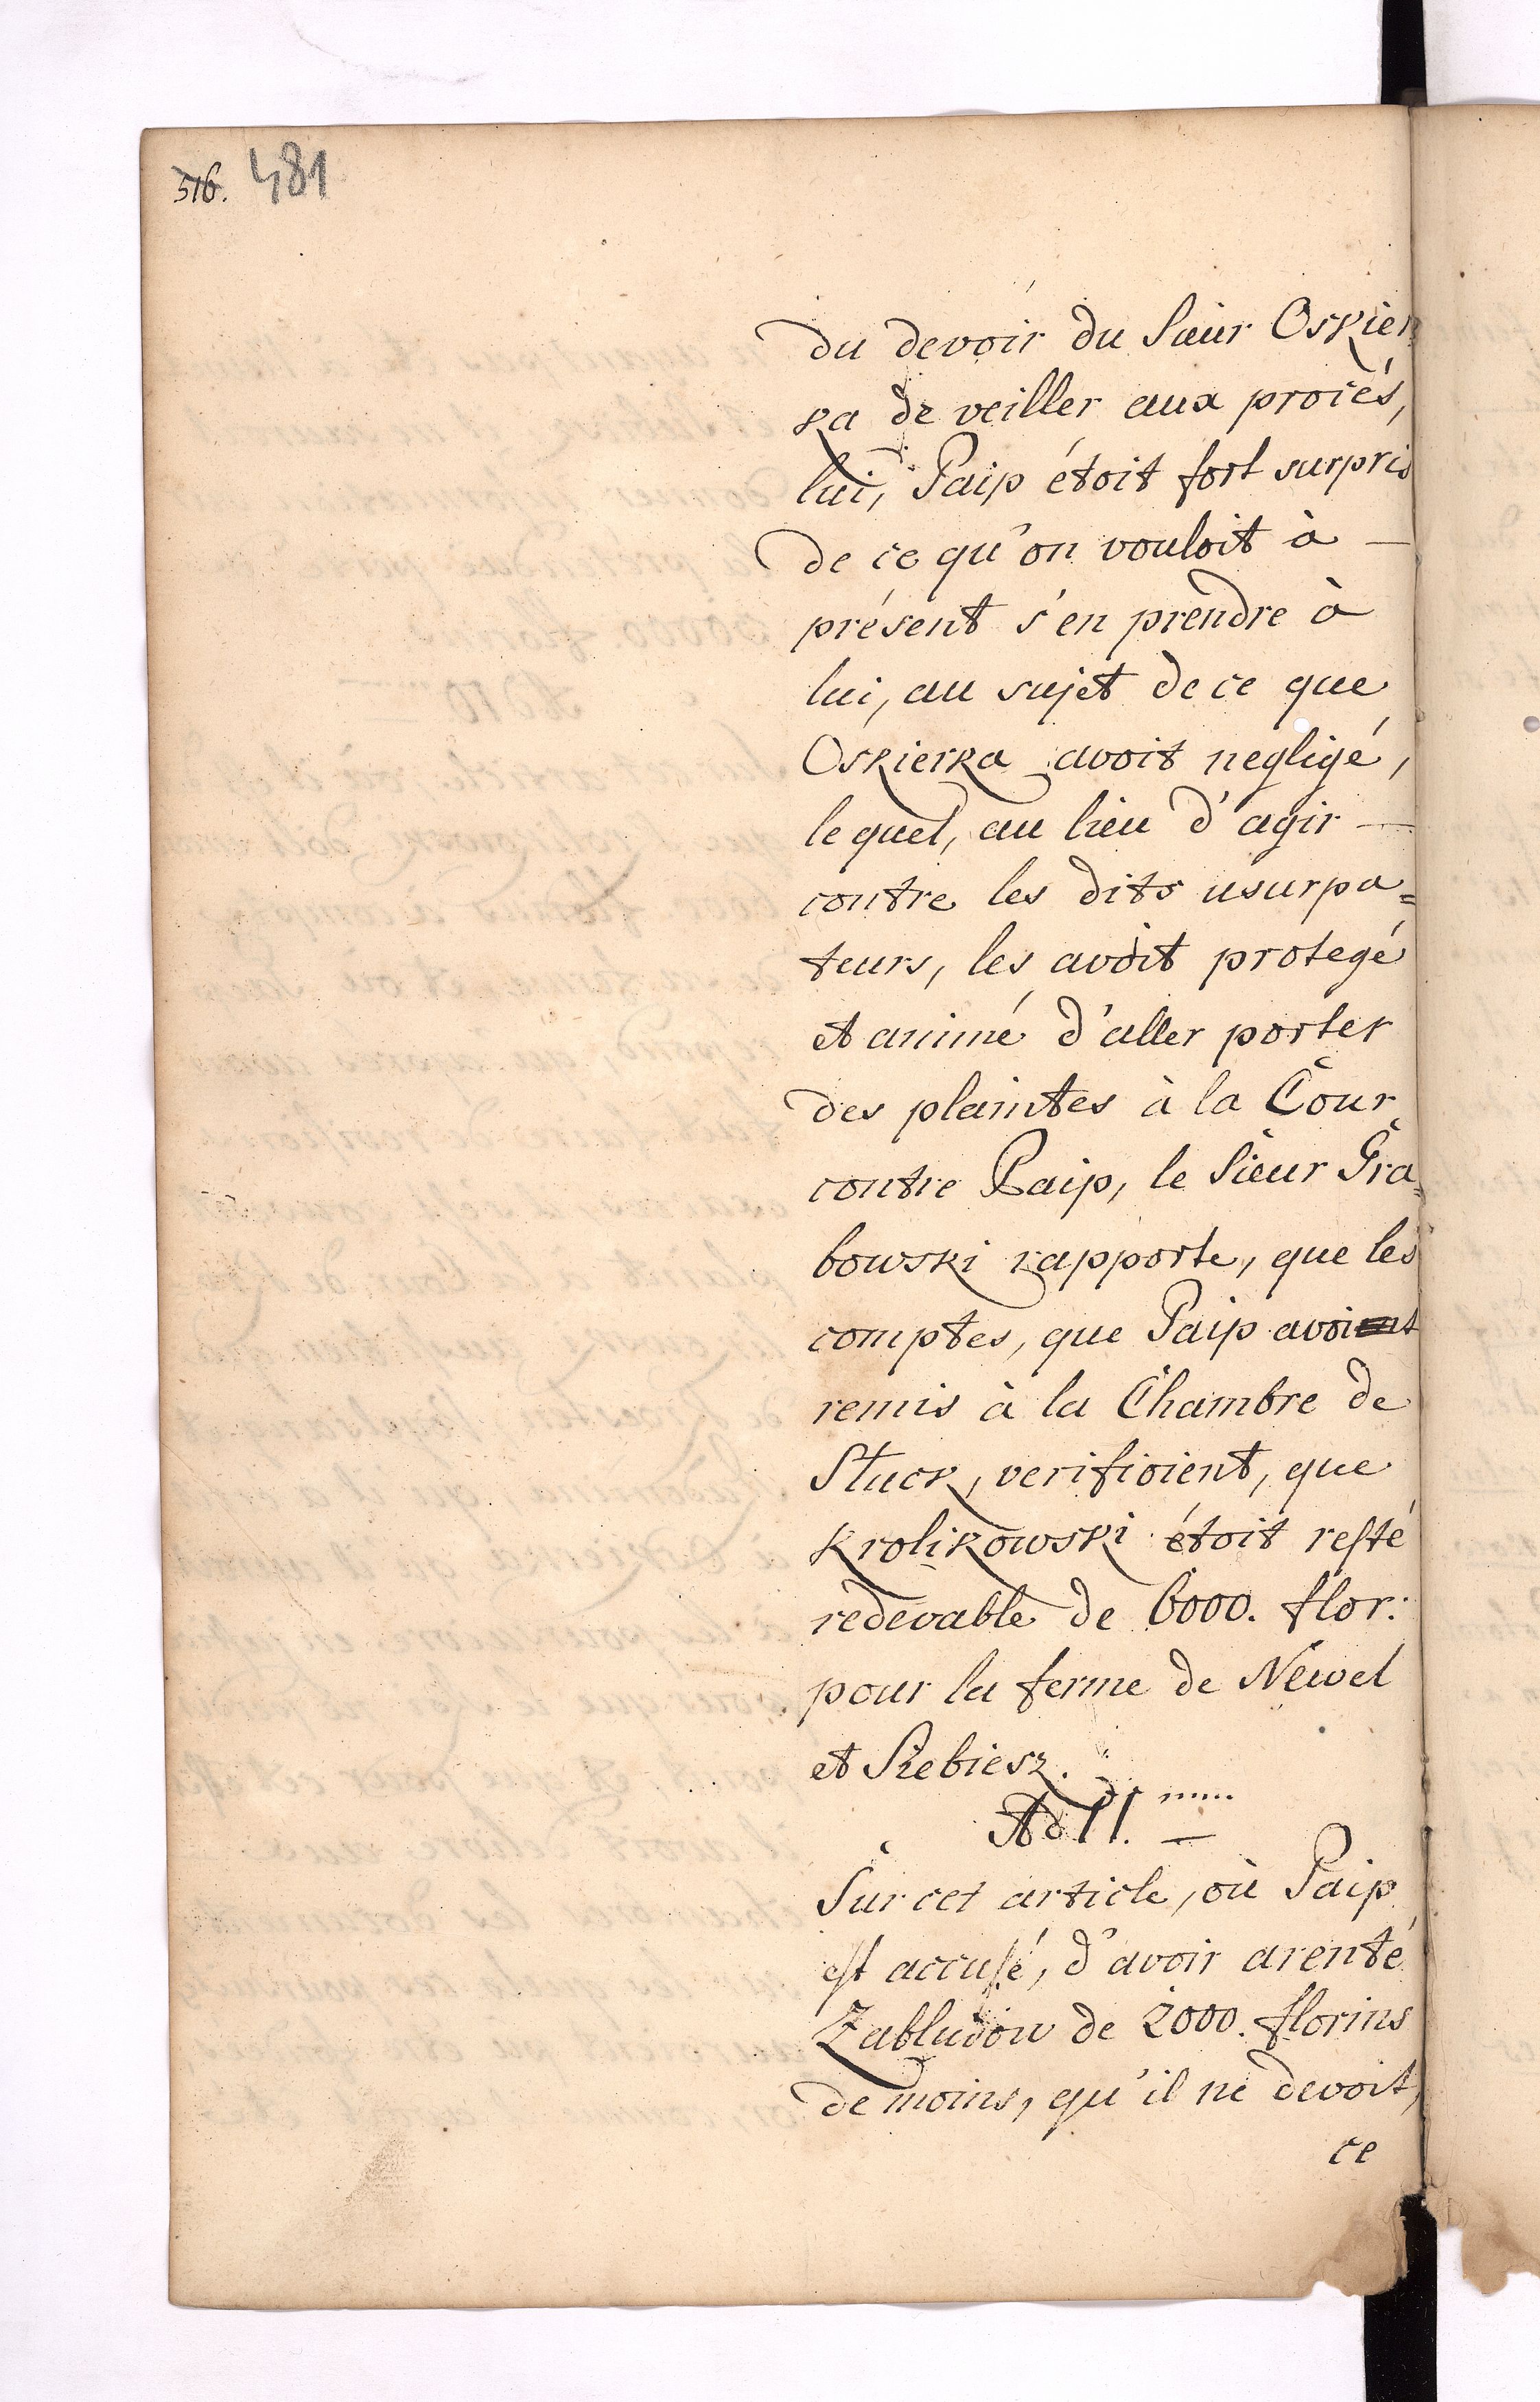 516. 481
du devoir du Sieur Oskier
ka de veiller aux procés,
lui, Paip étoit fort surpris
de ce qu'on vouloit à —
présent s'en prendre à
lui, au sujet de ce que
Oskierka avoit negligé,
le quel, au lieu d'agir —
contre les dits usurpa=
teurs, les avoit protegé
et animé d'aller porter
des plaintes à la Cour
contre Paip, le Sieur Gra=
bowski rapporte, que les
comptes, que Paip avoit
remis à la Chambre de
Sluck, verifioient, que
Krolikowski étoit resté
redevable de 6000. flor:
pour la ferme de Newel
et Siebiesz.
Ad 11. —
Sur cet article, où Paip
est accusé, d'avoir arenté
Zabludow de 2000. florins
de moins, qu'il ne devoit,
ce